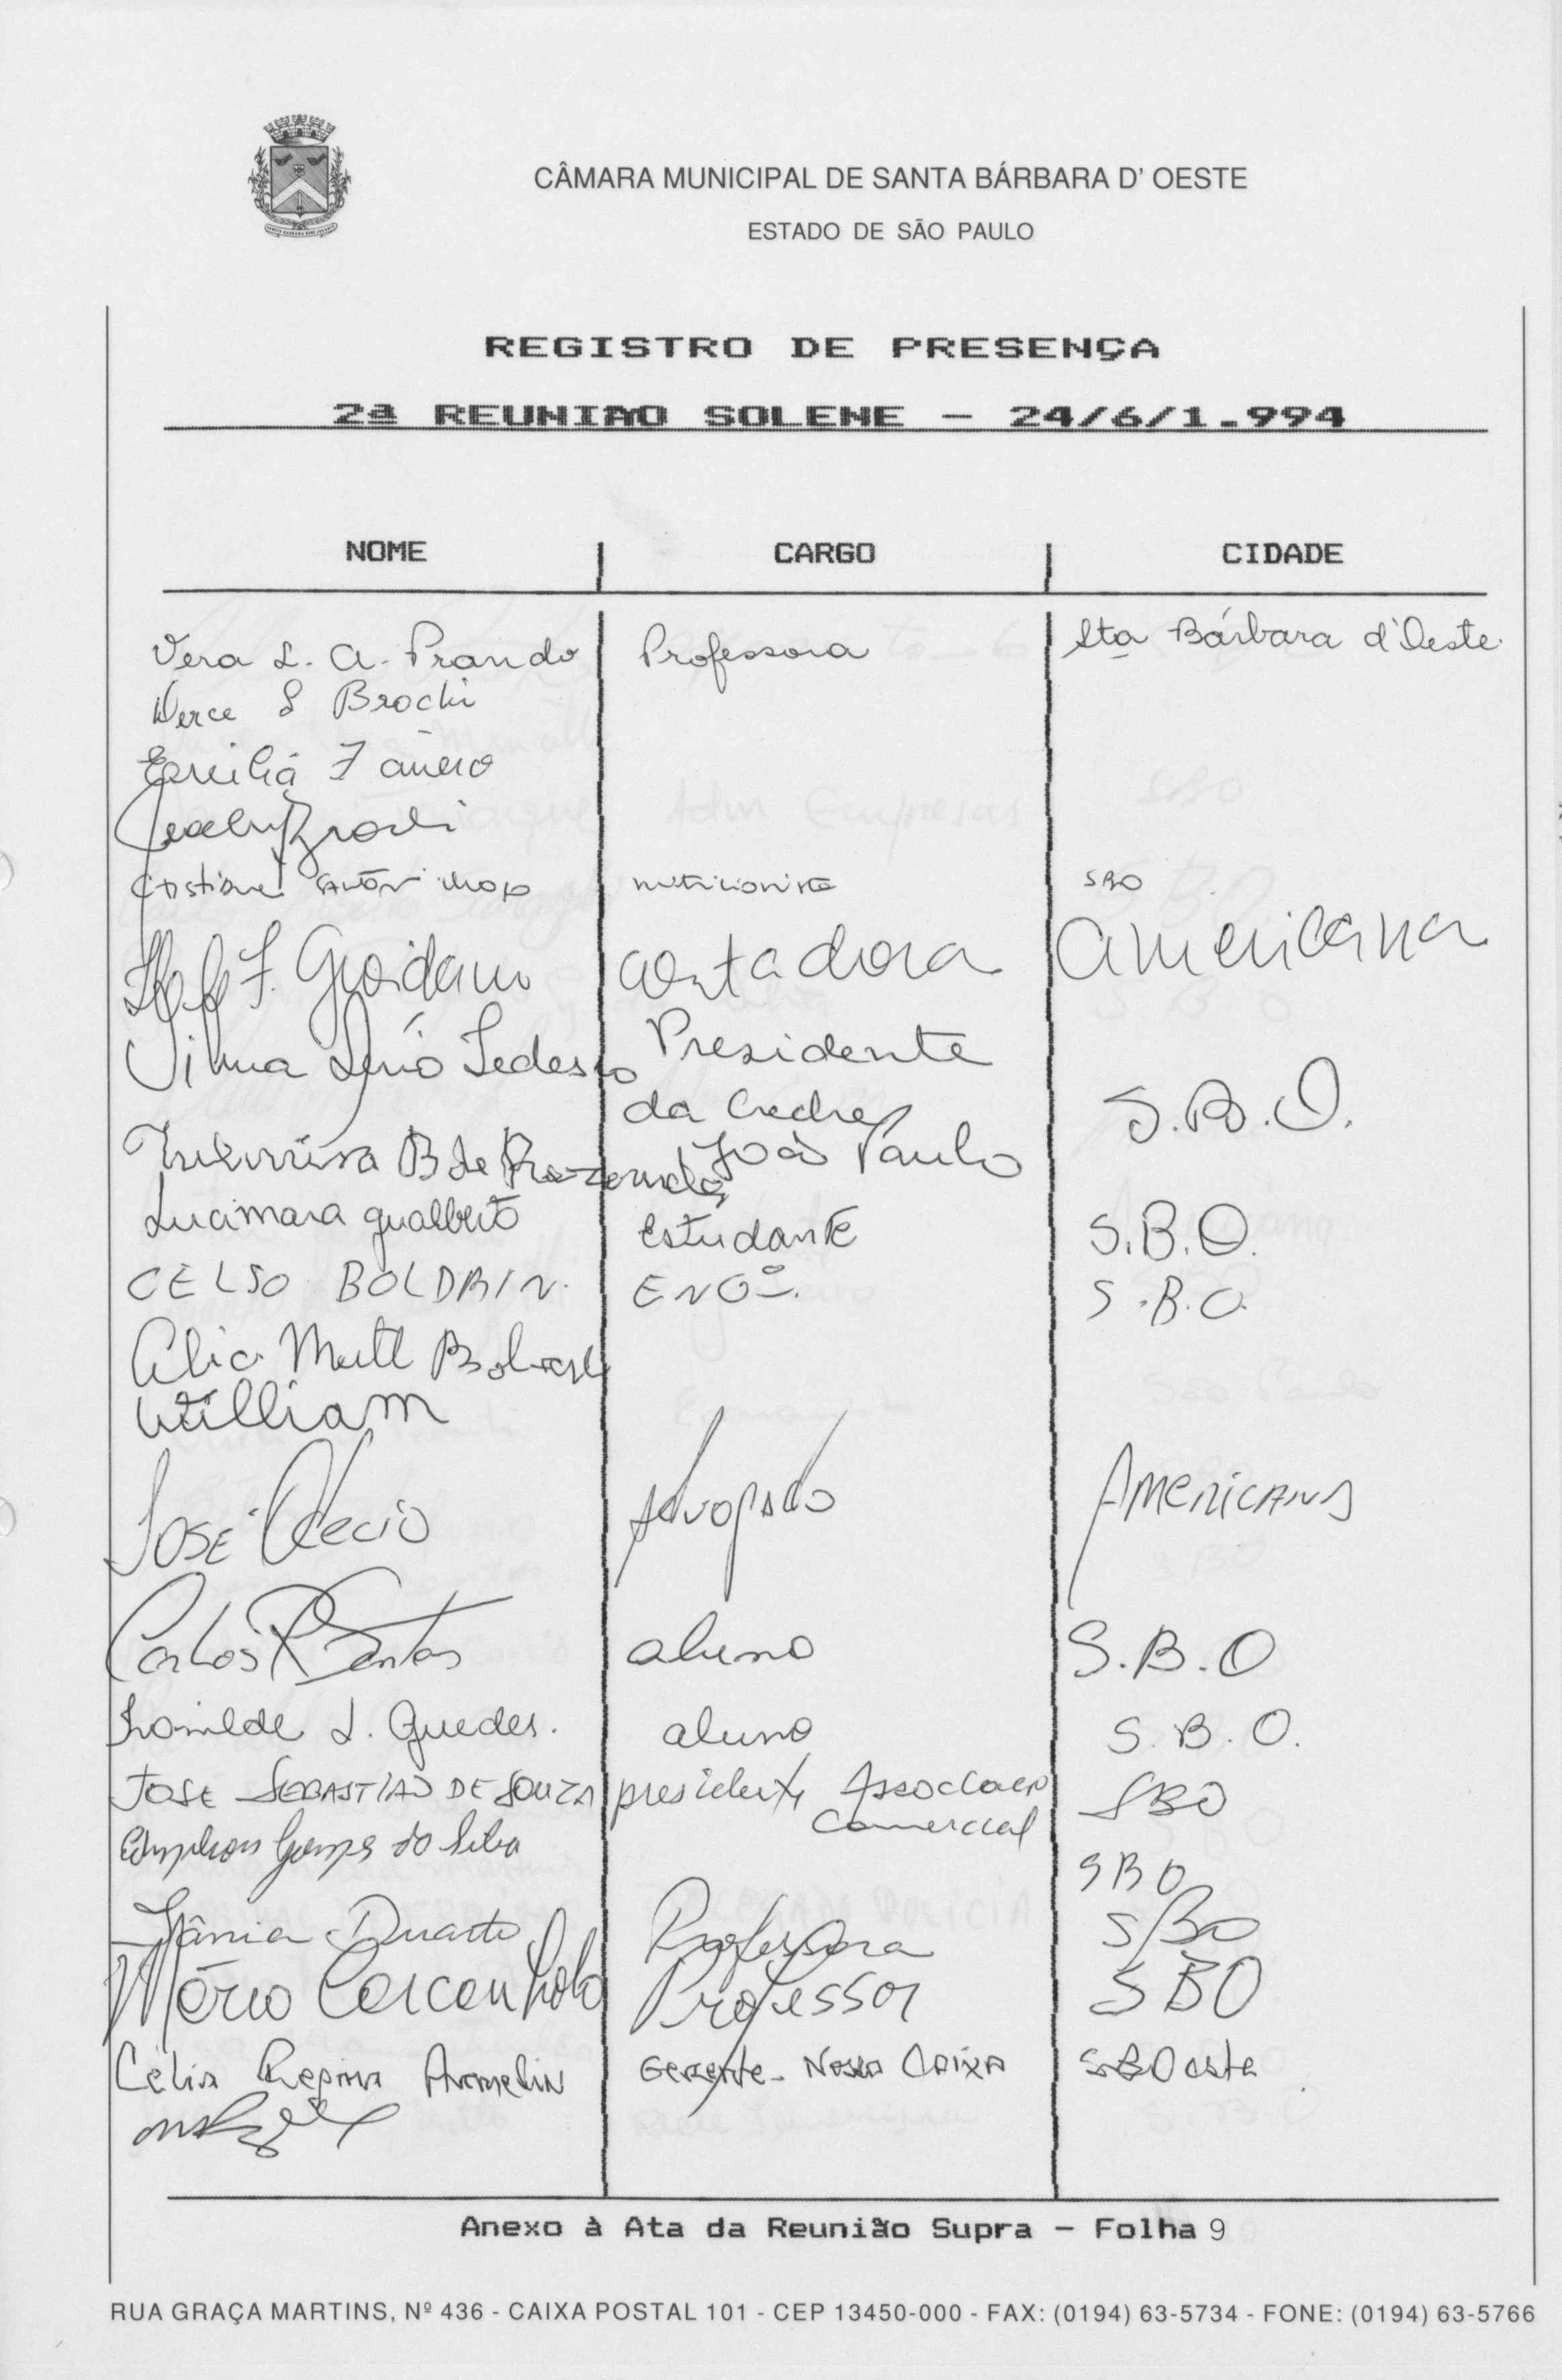 CÂMARA MUNICIPAL DE SANTA BÁRBARA D' OESTE
ESTADO DE SÃO PAULO
REGISTRO DE PRESENÇA
2ª REUNIÃO SOLENE - 24/6/1.994
NOME CARGO CIDADE
Vera L. A. Prando Professora Sta Bárbara d'Oeste.
Brochi
nutricionista SBO
Giordano contadora Americana
Vilma Tedesco Presidente
da Creche S.B.O.
João Paulo
B de
Lucimara Gualberto Estudante S.B.O.
CELSO BOLDRIN. ENGº. S.B.O.
William
JOSÉ Advogado Americana
Carlos R Santos aluno S.B.O
L. Guedes. aluno S.B.O.
JOSE SEBASTIÃO DE SOUZA presidente Associação SBO
Comercial
da Silva SBO
Tânia Duarte Professora SBO
Mário Professor SBO
Célia Regina Armelin Gerente - Nossa Caixa SBOeste
Anexo à Ata da Reunião Supra - Folha 9
RUA GRAÇA MARTINS, Nº 436 - CAIXA POSTAL 101 - CEP 13450-000 - FAX: (0194) 63-5734 - FONE: (0194) 63-5766